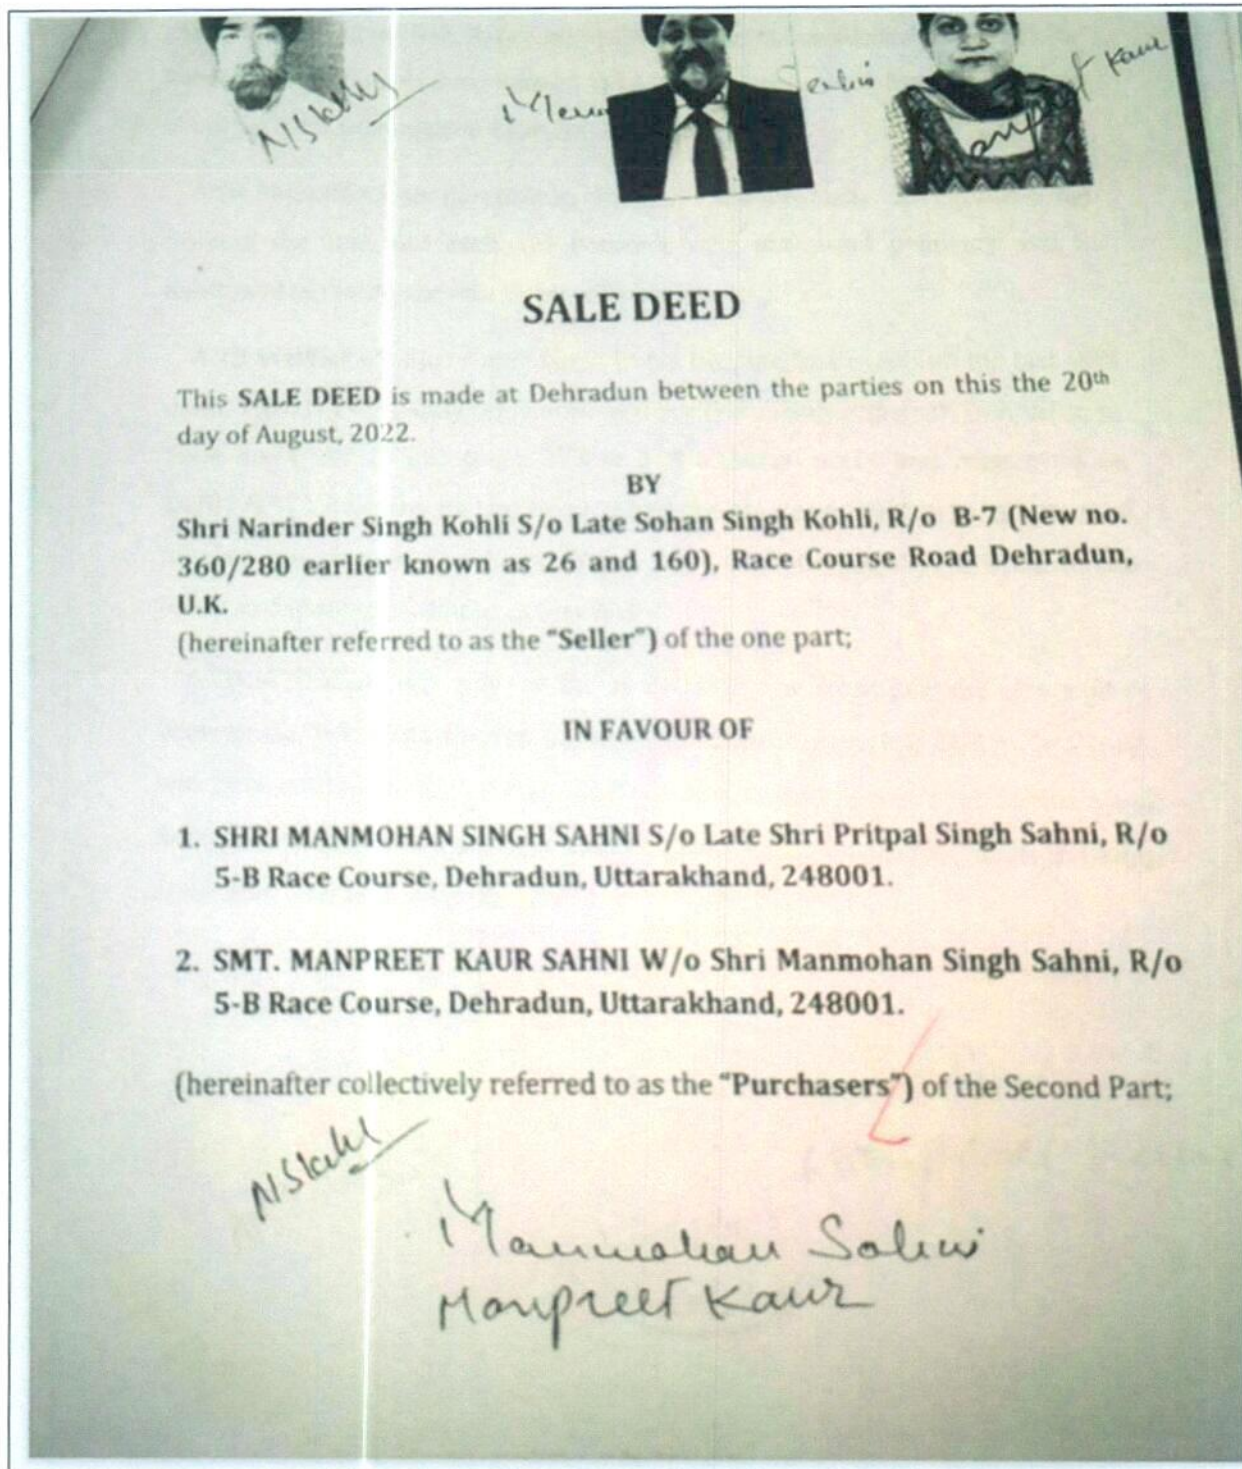 NSKohli
Kaur
SALE DEED
This SALE DEED is made at Dehradun between the parties on this the 20th
day of August, 2022.
BY
Shri Narinder Singh Kohli S/o Late Sohan Singh Kohli, R/o B-7 (New no.
360/280 earlier known as 26 and 160), Race Course Road Dehradun,
U.K.
(hereinafter referred to as the "Seller") of the one part;
IN FAVOUR OF
1. SHRI MANMOHAN SINGH SAHNI S/o Late Shri Pritpal Singh Sahni, R/o
5-B Race Course, Dehradun, Uttarakhand, 248001.
2. SMT. MANPREET KAUR SAHNI W/o Shri Manmohan Singh Sahni, R/o
5-B Race Course, Dehradun, Uttarakhand, 248001.
(hereinafter collectively referred to as the "Purchasers") of the Second Part;
NSKohli
Manmohan Sahni
Manpreet Kaur